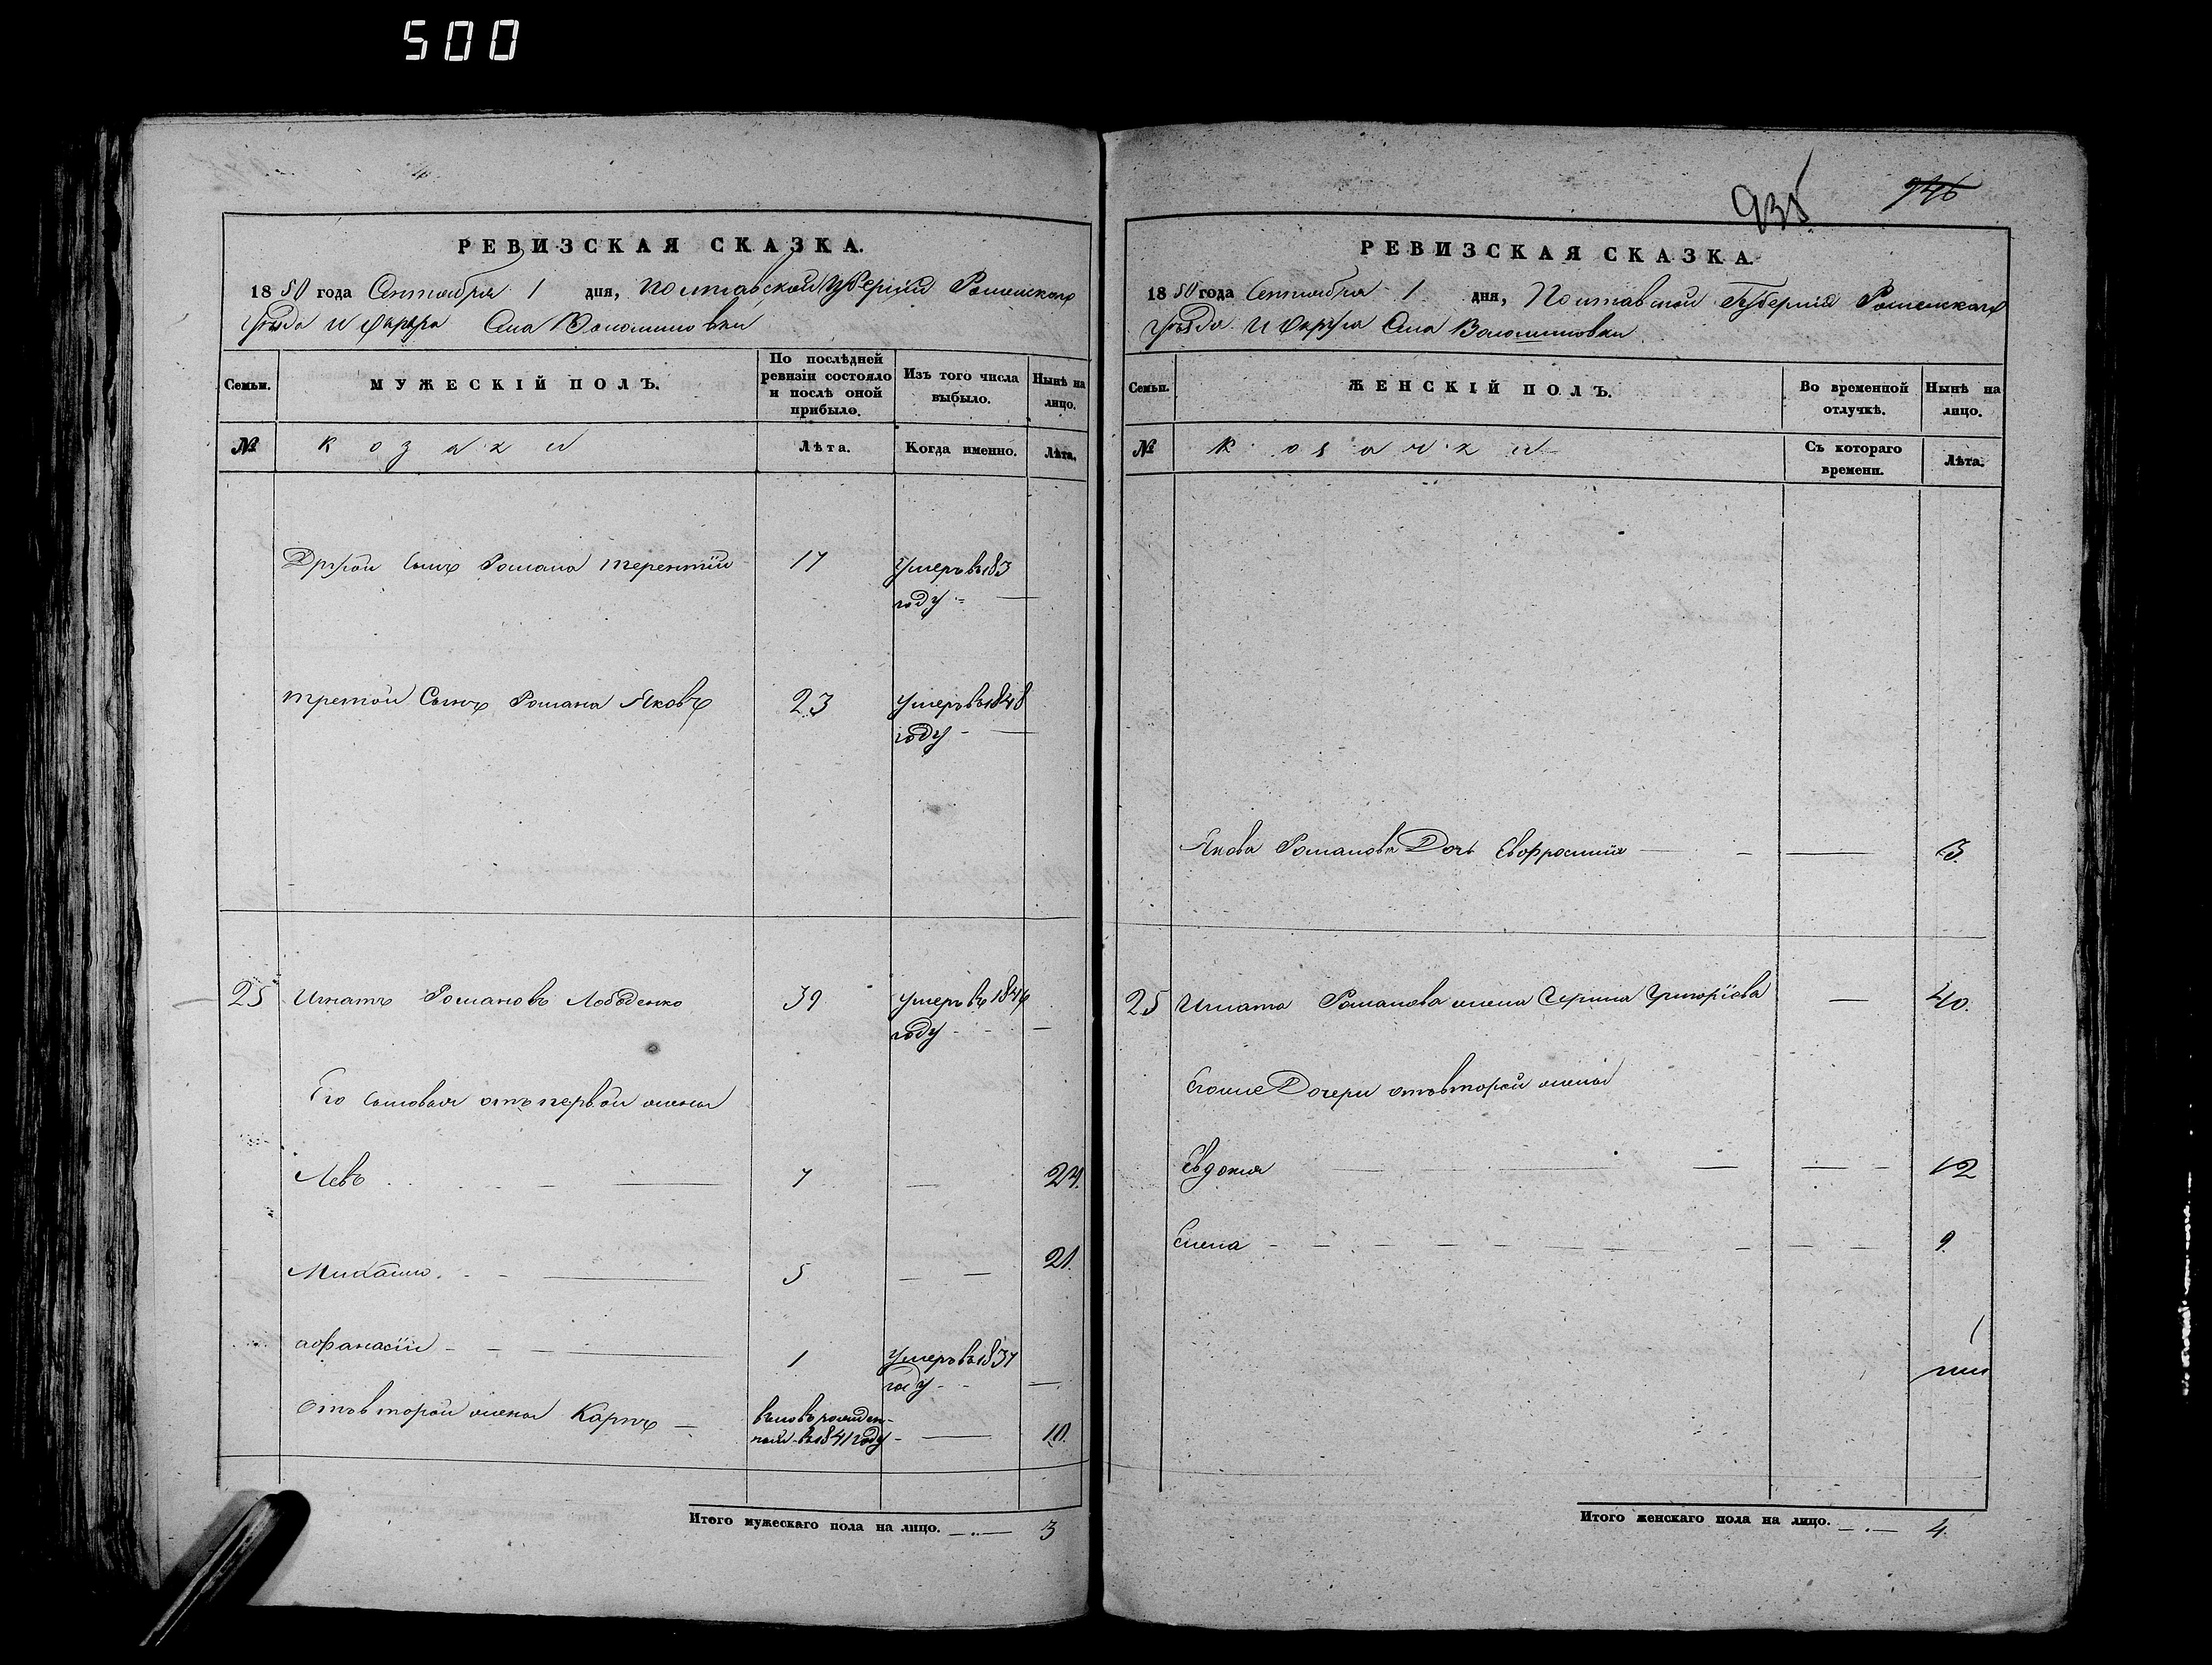 500
РЕВИЗСКАЯ СКАЗКА.
1850 года Сентября 1 дня, Полтавской Губернии Роменского
Уезда и Округа Села Волошиновки
Семьи.
МУЖЕСКІЙ ПОЛЪ.
По послѣдней ревизіи состояло и послѣ оной прибыло.
Изъ того числа выбыло.
Нынѣ на лицо.
№
козаки
Лѣта.
Когда именно.
Лѣта.
Другой Сынъ Романа Терентій 17 Умеръ въ 183
году
третой Сынъ Романа Яковъ 23 умеръ въ 1848
году
25 Игнатъ Романовъ Лободенко 39 умеръ въ
году
Его сыновья отъ первой жены
Левъ 7 24.
5 21.
Афанасій 1 Умеръ въ 1837
году
отъ второй жены Карпъ вновь рожден-
ный въ 1841 году 10.
Итого мужескаго пола на лицо. 3
935
946
РЕВИЗСКАЯ СКАЗКА.
1850 года Сентября 1 дня, Полтавской Губернии Роменского
Уезда и Округа Села Волошиновки
Семьи.
ЖЕНСКІЙ ПОЛЪ.
Во временной отлучкѣ.
Нынѣ на лицо.
№
козачки
Съ котораго времени.
Лѣта.
Якова Романова Дочь Евфросинія 3.
25 Игната Романова жена Григоріева 40.
Егоже Дочери отъ второй жены
Евдокия 12
Елена 9.
Итого женскаго пола на лицо. 4.